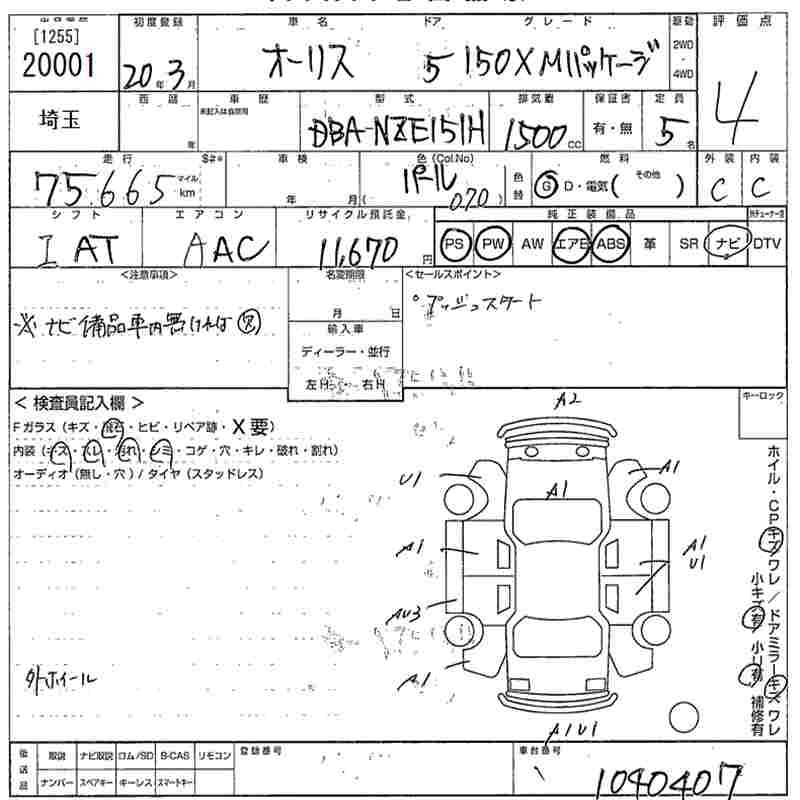 [1255]
20001
初度登録
20年3月
車名
オーリス
ドア
5
グレード
150X Mパッケージ
駆動
2WD
4WD
評価点
4
埼玉
西暦
年
車歴
未記入は自家用
型式
DBA-NZE151H
排気量
1500cc
保証書
有・無
定員
5名
走行
75,665
マイル
km
S#*
車検
年 月(
色(Col.No)
パール
070)
色替
燃料
G D・電気( その他 )
外装
C
内装
C
シフト
IAT
エアコン
AAC
リサイクル預託金
11,670円
純正装備品
PS PW AW エアB ABS 革 SR ナビ DTV
<注意事項>
※ナビ備品車内無ければ欠
名変期限
月 日
輸入車
ディーラー・並行
左H・右H
<セールスポイント>
°プッシュスタート
<検査員記入欄>
Fガラス(キズ・飛石・ヒビ・リペア跡・X要)
内装(キズ・スレ・汚れ・シミ・コゲ・穴・キレ・破れ・割れ)
オーディオ(無し・穴)/タイヤ(スタッドレス)
外ホイール
キーロック
A2
U1
A1
A1
A1
A1
U1
AU3
A1
A1U1
ホイル・CPキズワレ/ドアミラーキズワレ
小キズ有 小U有 補修有
後送品
取説 ナビ取説 ロム/SD B-CAS リモコン
ナンバー スペアキー キーレス スマートキー
登録番号
車台番号
1040407